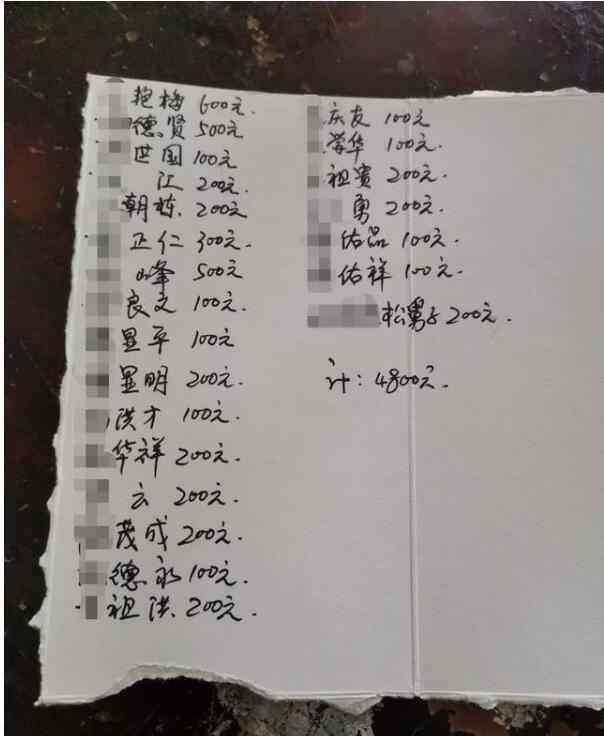 艳梅 600元.
德贤 500元
世国 100元
江 200元.
朝栋. 200元
正仁 300元.
峰 500元
良文 100元.
显平 100元
显明 200元.
洪才 100元.
华祥 200元.
云 200元.
茂成 200元.
德永 100元.
祖洪. 200元.
庆友 100元
荣华 100元.
祖资 200元.
勇 200元.
佑品 100元.
佑祥 100元.
松舅子 200元.
计: 4800元.